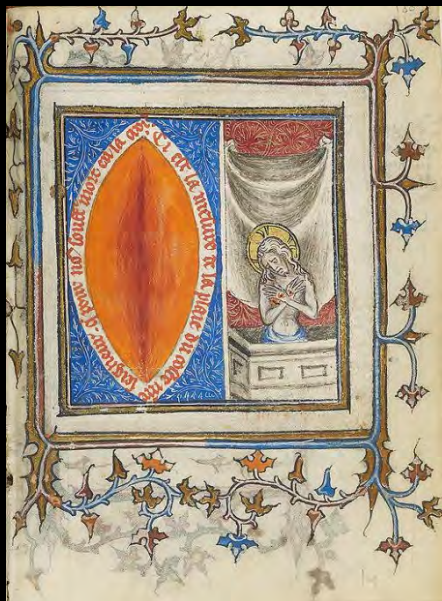 Cest la mesure de la plaie du coste nre
seigneur. q pour no souffri mort en la